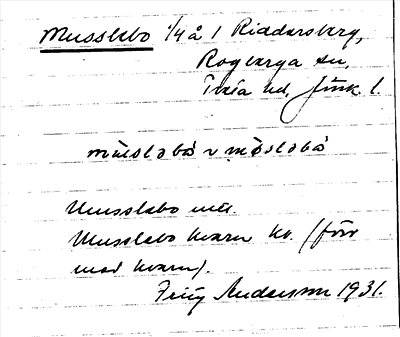 Musslebo 1/4 å 1 Riddersberg,
Rogberga sn,
Tveta hd, Jönk l.
musləbo v møsləbo
Musslebo mtl.
Musslebo kvarn kv. (förr
med kvarn).
Andersson 1931.